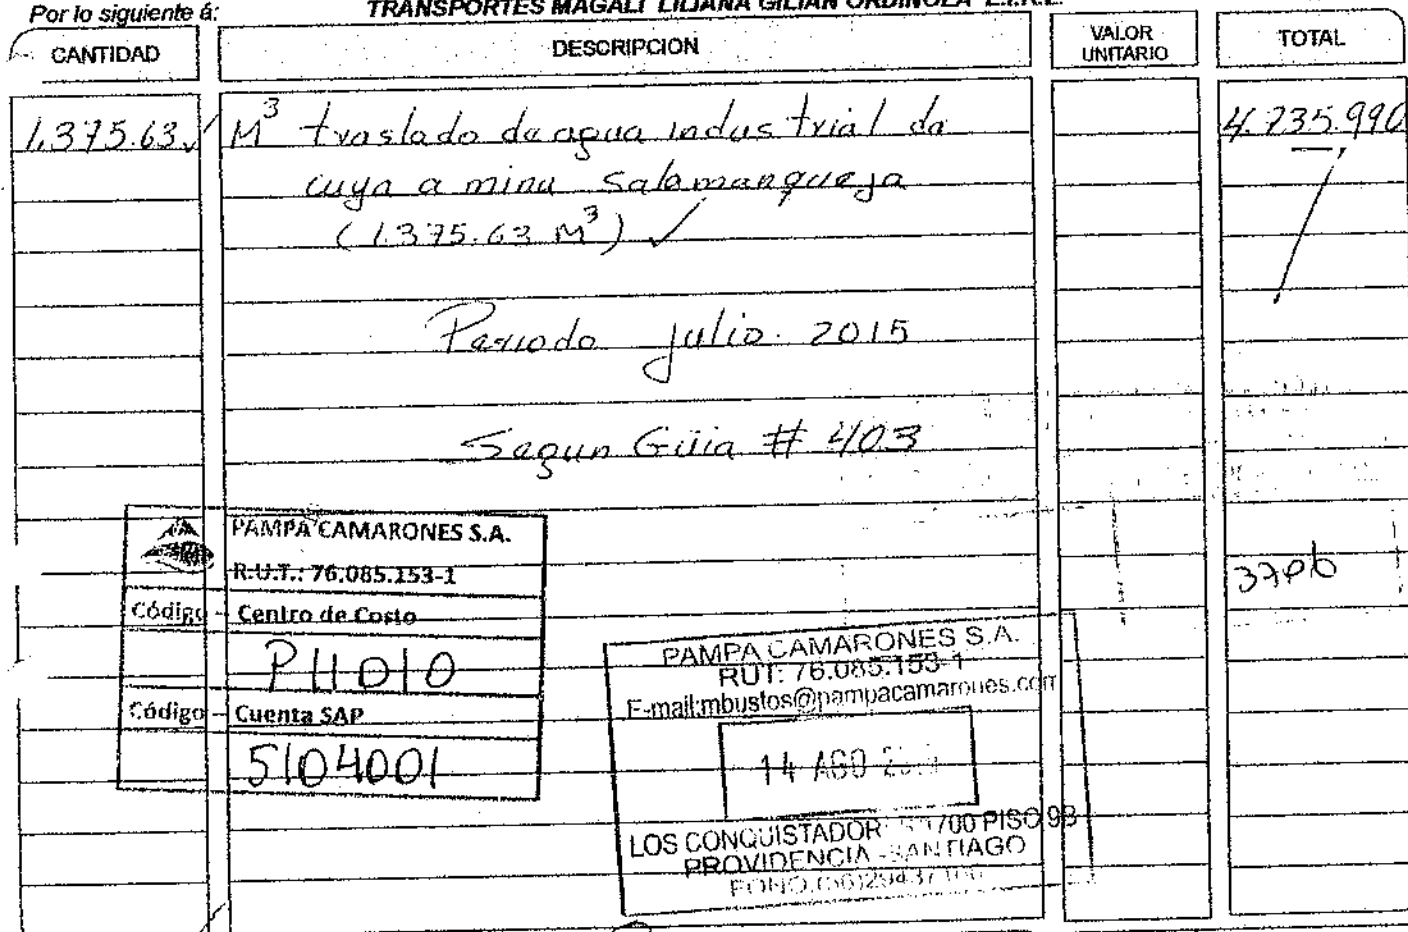 Por lo siguiente á: TRANSPORTES MAGALI LILIANA GILIAN ORDINOLA E.I.R.L.
CANTIDAD DESCRIPCION VALOR UNITARIO TOTAL
1,375.63 M³ traslado de agua industrial de 4.235.990
cuya a mina Salamanqueja
(1.375.63 M³)
Periodo julio 2015
Segun Güia # 403
PAMPA CAMARONES S.A.
R.U.T.: 76.085.153-1
Código - Centro de Costo
P11010
Código - Cuenta SAP
5104001
PAMPA CAMARONES S.A.
RUT: 76.085.153-1
E-mail:mbustos@pampacamarones.com
14 AGO
LOS CONQUISTADOR 1700 PISO 9B
PROVIDENCIA - SANTIAGO